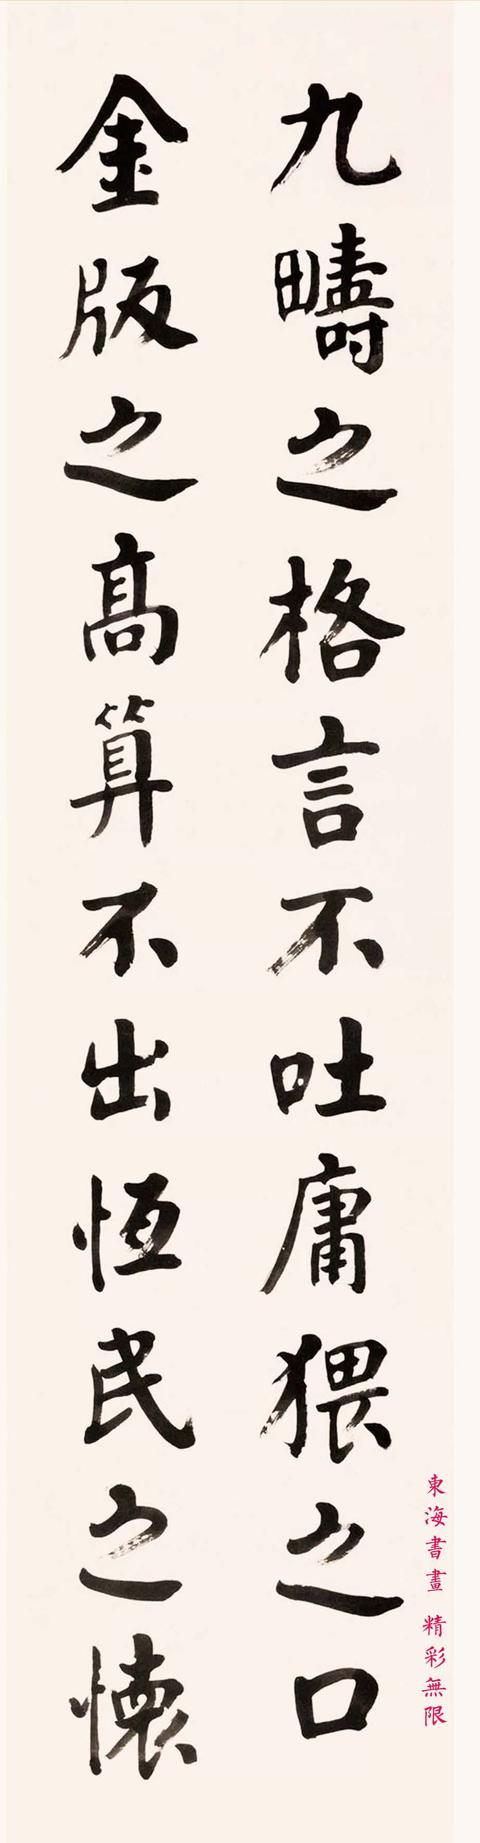 九疇之格言不吐庸猥之口
金版之高算不出恆民之懷
東海書畫 精彩無限